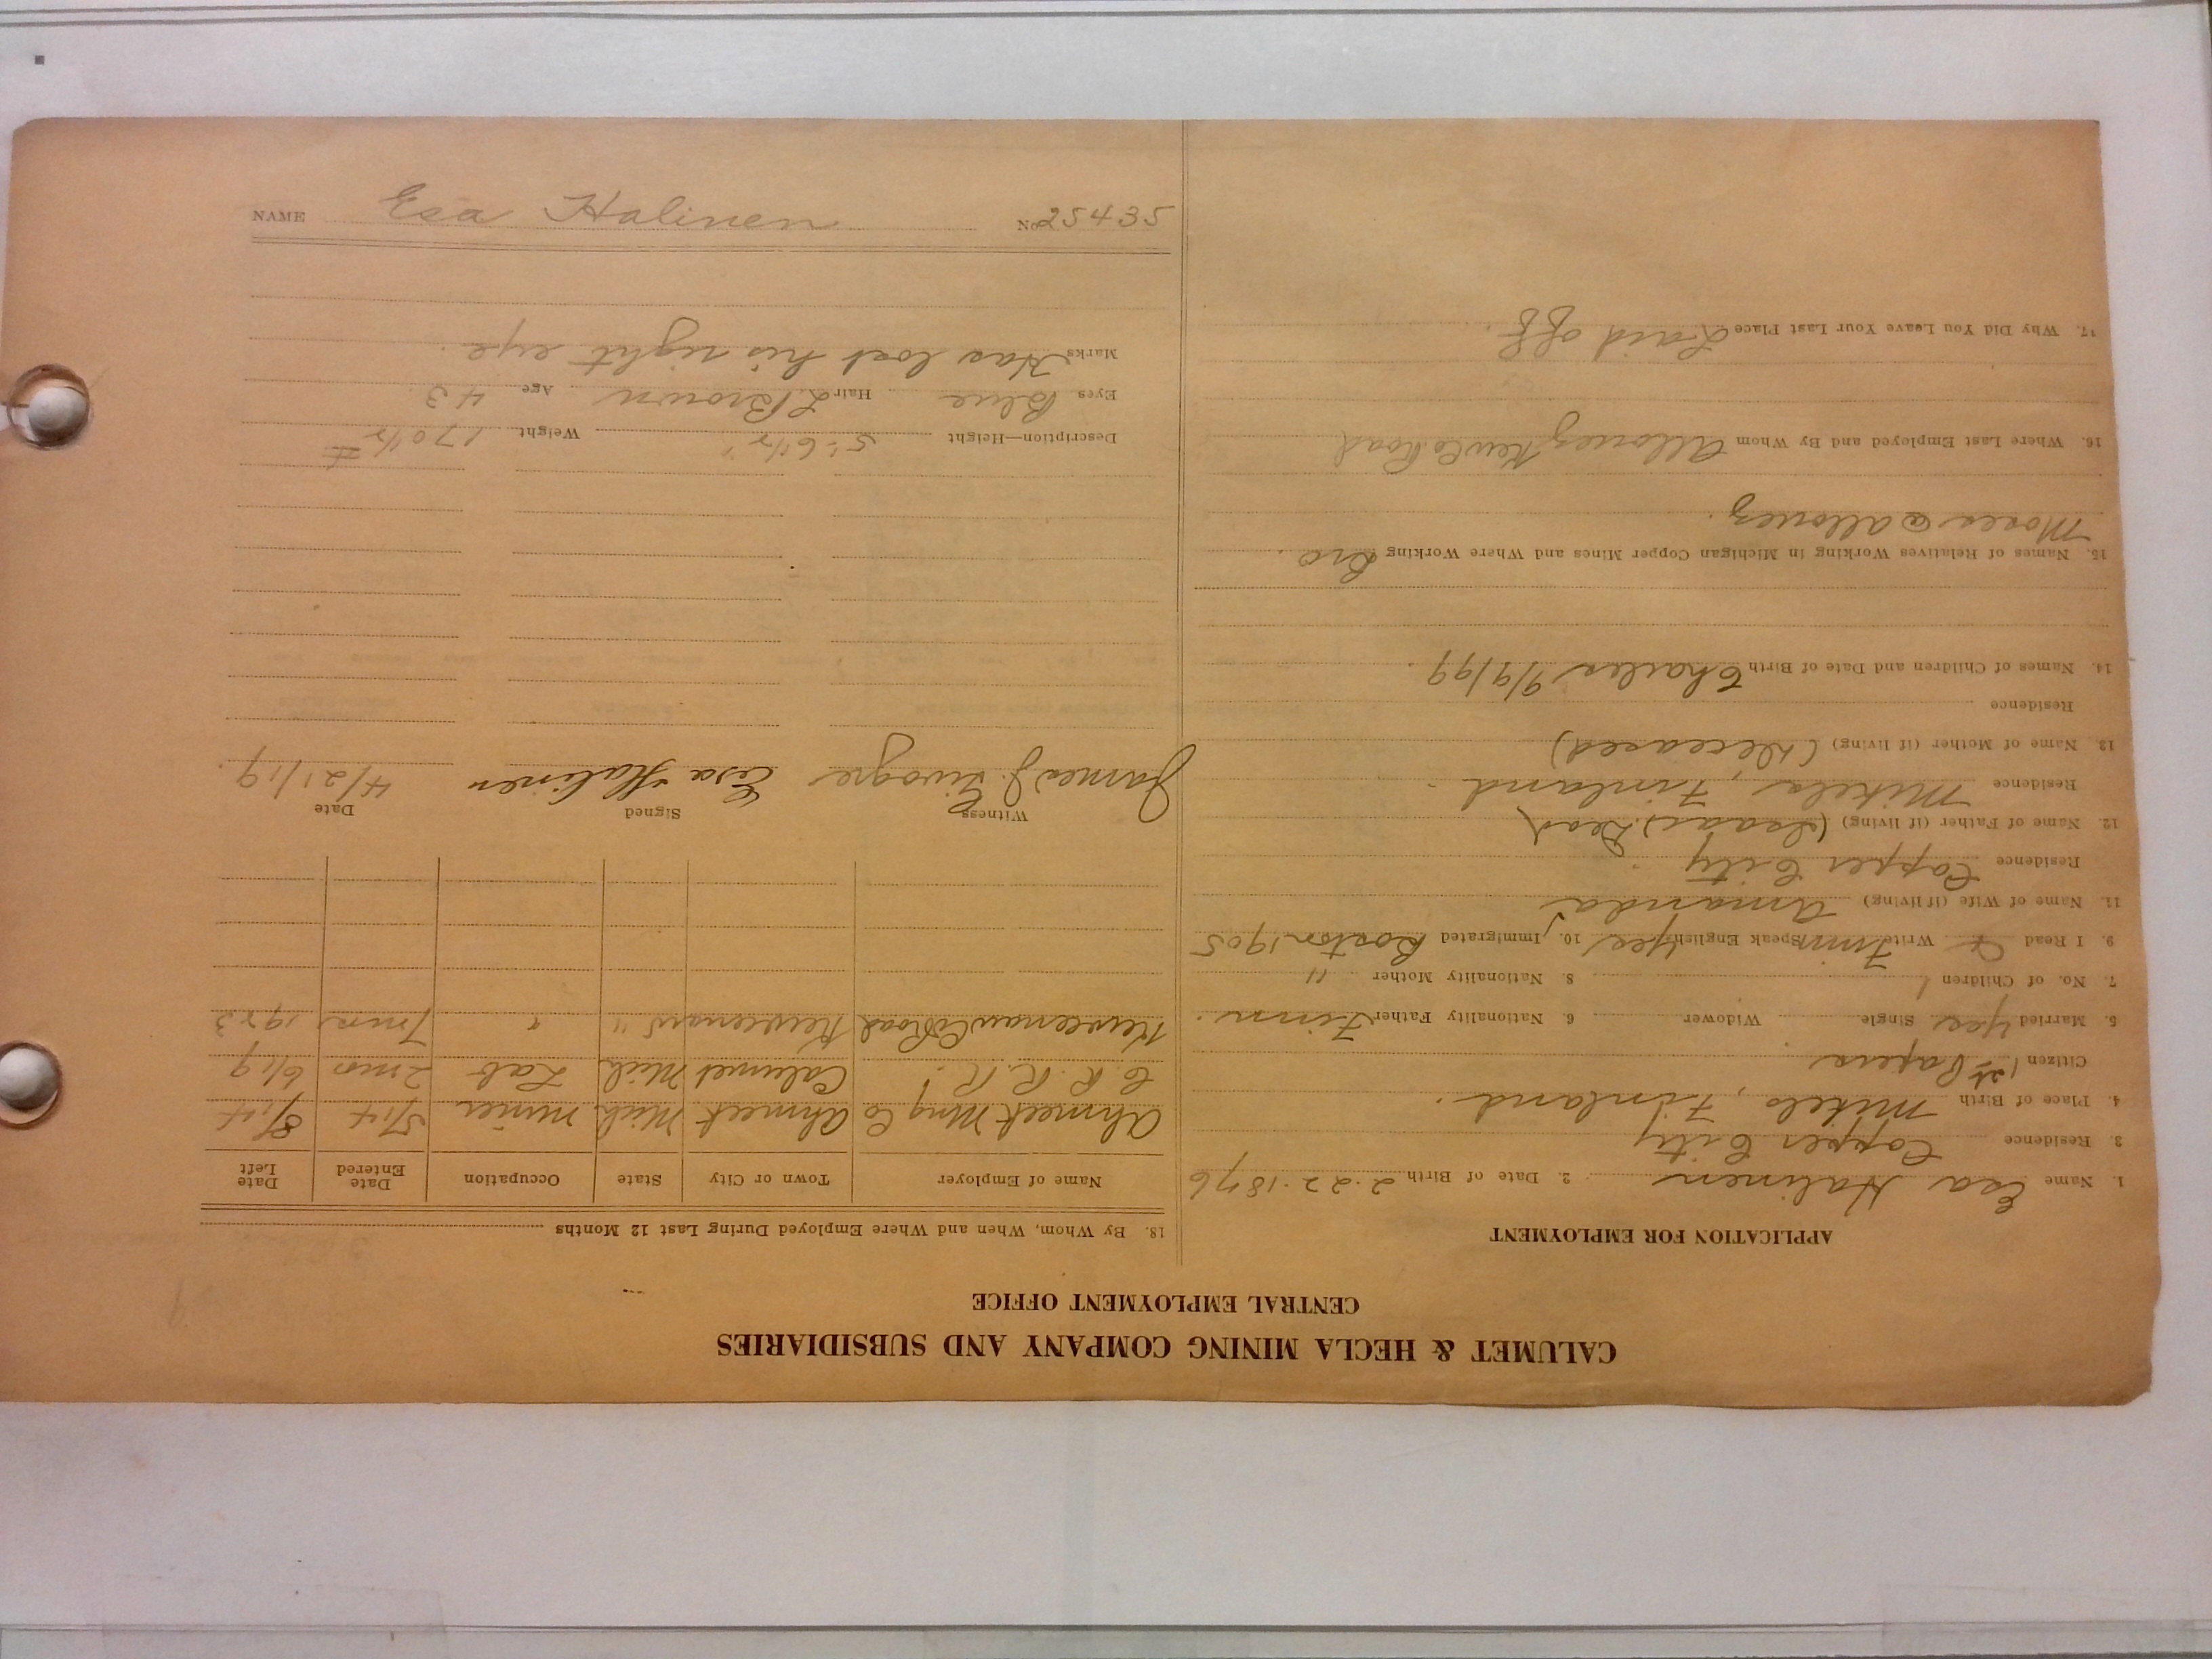 CALUMET & HECLA MINING COMPANY AND SUBSIDIARIES
CENTRAL EMPLOYMENT OFFICE
APPLICATION FOR EMPLOYMENT
1. Name Esa Halinen 2. Date of Birth 2.22.1876
3. Residence Copper City
4. Place of Birth Mikela, Finland.
Citizen 1st Papers
5. Married Yes Single Widower 6. Nationality Father Finn.
7. No. of Children 1 8. Nationality Mother "
9. I Read & Write Finn Speak English Yes 10. Immigrated Boston 1905
11. Name of Wife (if living) Amanda
Residence Copper City
12. Name of Father (if living) (Isaac) Dead
Residence Mikela, Finland
13. Name of Mother (if living) (Deceased)
Residence
14. Names of Children and Date of Birth Charles 9/9/99.
15. Names of Relatives Working in Michigan Copper Mines and Where Working Bro
Moses @ Allouez.
16. Where Last Employed and By Whom Allouez Kew Co Road
17. Why Did You Leave Your Last Place Laid off.
18. By Whom, When and Where Employed During Last 12 Months
Name of Employer Town or City State Occupation Date Entered Date Left
Ahmeek Mng Co Ahmeek Mich miner 5/14 8/14
C. R. R. R. Calumet Mich Lab 2 mos 6/19
Keweenaw Co Road Keweenaw " " 7 mos 1923
Witness Signed Date
James J. Esa Halinen 4/21/19.
Description—Height 5'-6 1/2" Weight 170 1/2 #
Eyes Blue Hair L Brown Age 43
Marks Has lost his right eye.
NAME Esa Halinen No 25435